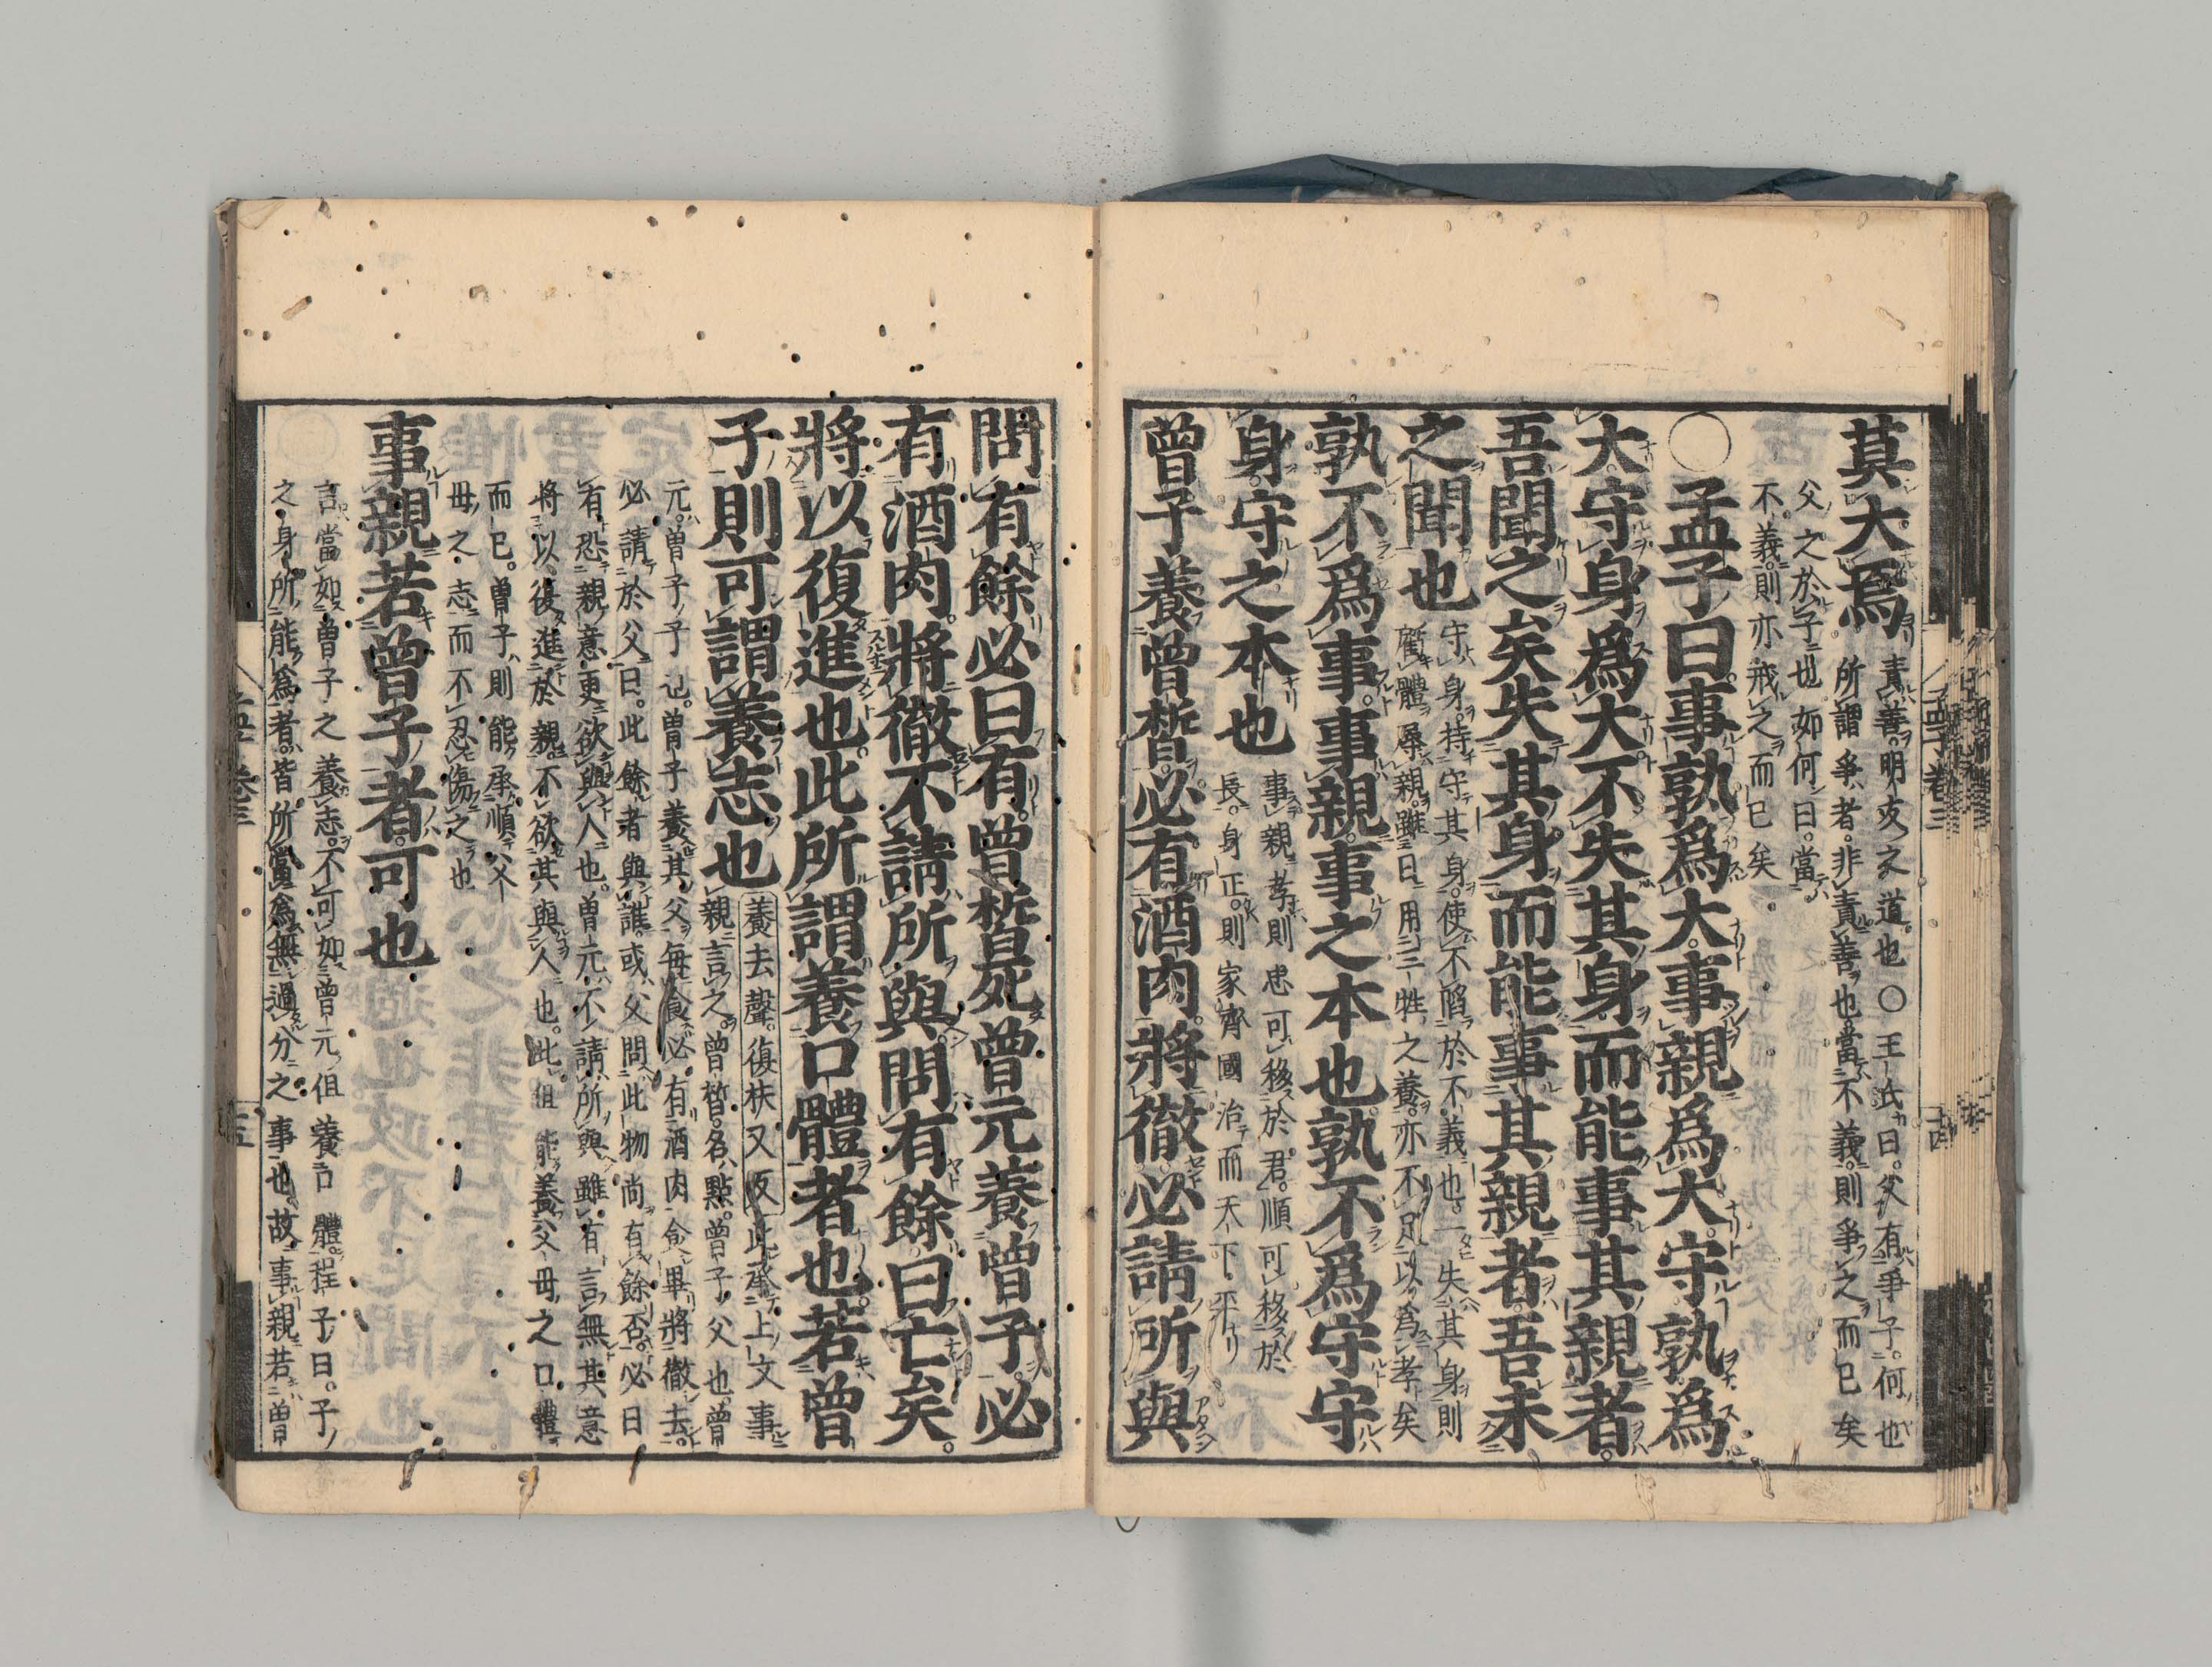 莫大焉
責善朋友之道也○王氏曰父有爭子何也
所謂爭者非責善也當不義則爭之而已矣
父之於子也如何曰當
不義則亦戒之而已矣
○孟子曰事孰爲大事親爲大守孰爲
大守身爲大不失其身而能事其親者
吾聞之矣失其身而能事其親者吾未
之聞也
守身持守其身使不陷於不義也一失其身則
虧體辱親雖日用三牲之養亦不足以爲孝矣
孰不爲事事親事之本也孰不爲守守
身守之本也
事親孝則忠可移於君順可移於
長身正則家齊國治而天下平
曾子養曾晳必有酒肉將徹必請所與
孟子卷三
十四
問有餘必曰有曾晳死曾元養曾子必
有酒肉將徹不請所與問有餘曰亡矣
將以復進也此所謂養口體者也若曾
子則可謂養志也
養去聲復扶又反此承上文事
親言之曾晳名點曾子父也曾
元曾子子也曾子養其父每食必有酒肉食畢將徹去
必請於父曰此餘者與誰或父問此物尚有餘否必曰
有恐親意更欲與人也曾元不請所與雖有言無其意
將以復進於親不欲其與人也此但能養父母之口體
而已曾子則能承順父
母之志而不忍傷之也
事親若曾子者可也
言當如曾子之養志不可如曾元但養口體程子曰子
之身所能爲者皆所當爲無過分之事也故事親若曾
孟子卷三
十五